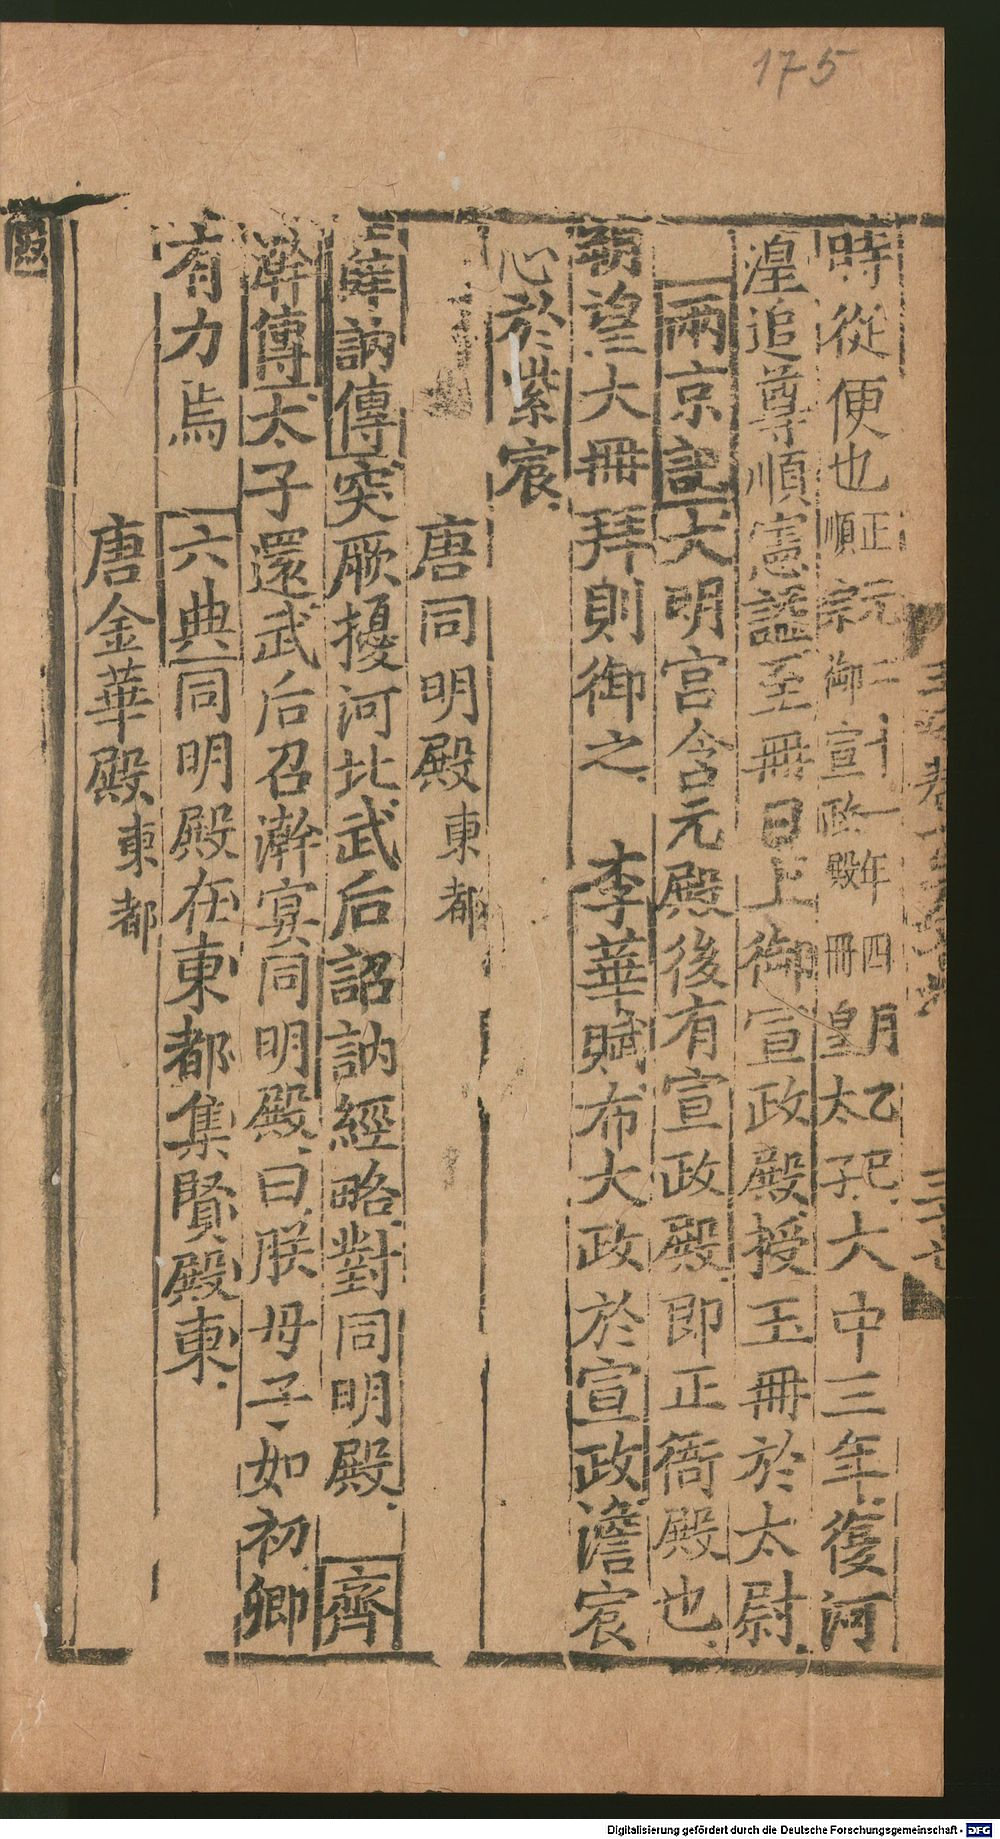 175
時從便也正元二十一年四月乙巳順宗御宣政殿冊皇太子大中三年復河
湟追尊順憲諡至冊日上御宣政殿授玉冊於太尉
兩京記大明宮含元殿後有宣政殿即正衙殿也
朔望大冊拜則御之 李華賦布大政於宣政澹宸
心於紫宸
唐同明殿東都
薛訥傳突厥擾河北武后詔訥經略對同明殿 齊
澣傳太子還武后召澣宴同明殿曰朕母子如初卿
有力焉 六典同明殿在東都集賢殿東
唐金華殿東都
殿
Digitalisierung gefördert durch die Deutsche Forschungsgemeinschaft - DFG